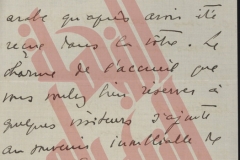 arabe qu'après avoir été
reçu dans la vôtre. Le
charme de l'accueil que
vous voulez bien réserver à
quelques visiteurs s'ajoute
au souvenir inoubliable de